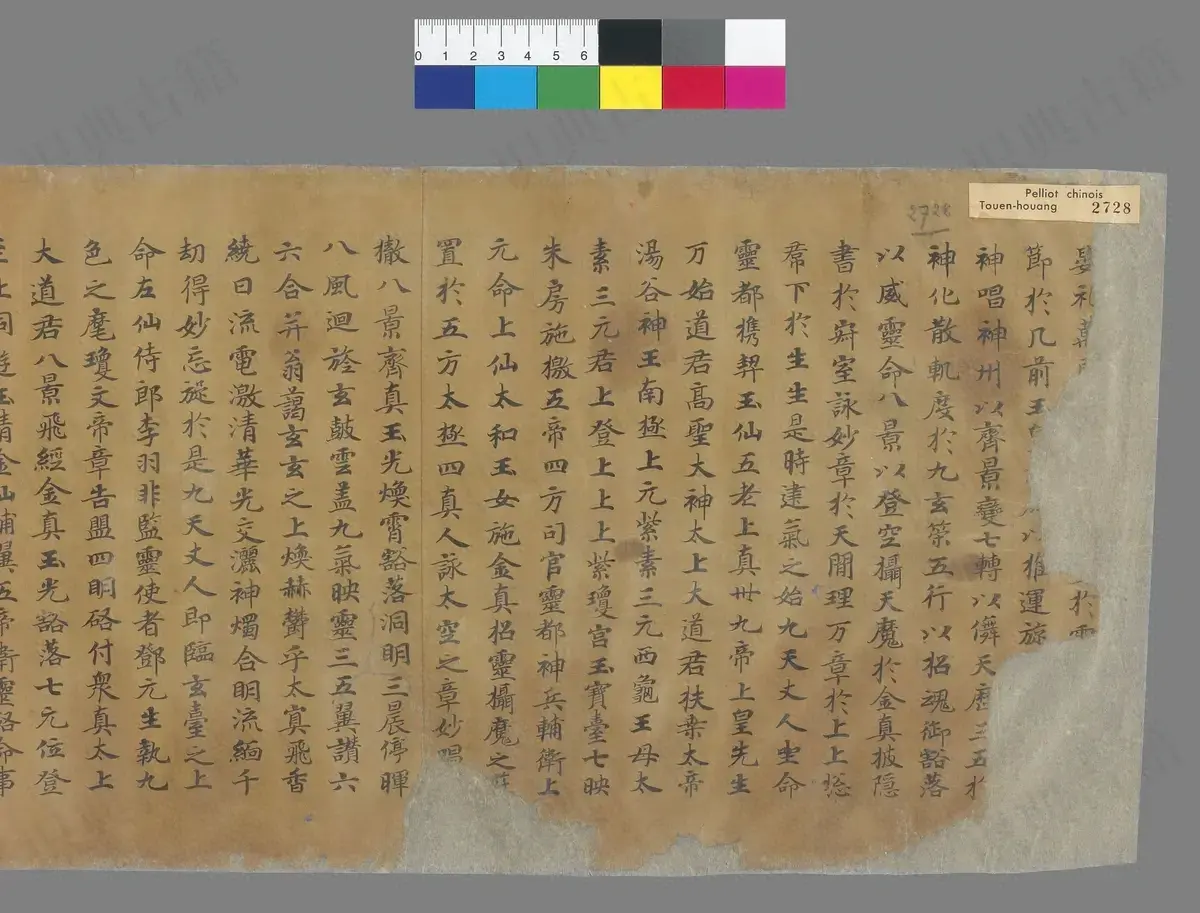 0 1 2 3 4 5 6
Pelliot chinois
Touen-houang 2728
2728
於
節於几前玉 以推運旋
神唱神州以齊景變七轉以儛天 三五於
神化散軌度於九玄筞五行以招魂御豁落
以威靈命八景以登空攝天魔於金真披隠
書於 室詠妙章於天 理万章於上上総
帬下於生生是時建氣之始九天丈人聖命
靈都攜契玉仙五老上真卅九帝上皇先生
万始道君高聖大神太上大道君扶桒太帝
湯谷神王南極上元紫素三元西龜王母太
素三元君上登上上上紫瓊宫玉寶臺七映
朱房施檄五帝四方司官靈都神兵輔衛上
元命上仙太和玉女施金真招靈攝魔之
置於五方太極四真人詠太空之章妙唱
撤八景齊真玉光煥霄豁落洞明三晨停暉
八風迴於玄皷雲盖九氣映靈三五翼讚六
六合并翁藹玄玄之上煥赫欝乎太冥飛香
繞日流電激清華光交灑神燭合明流 千
刧得妙忘旋於是九天丈人即臨玄臺之上
命左仙侍郎李羽非監靈使者鄧元生執九
色之麾瓊文帝章告盟四明 付衆真太上
大道君八景飛經金真玉光豁落七元位登
上同遊玉清金仙輔翼五帝衛靈 命事